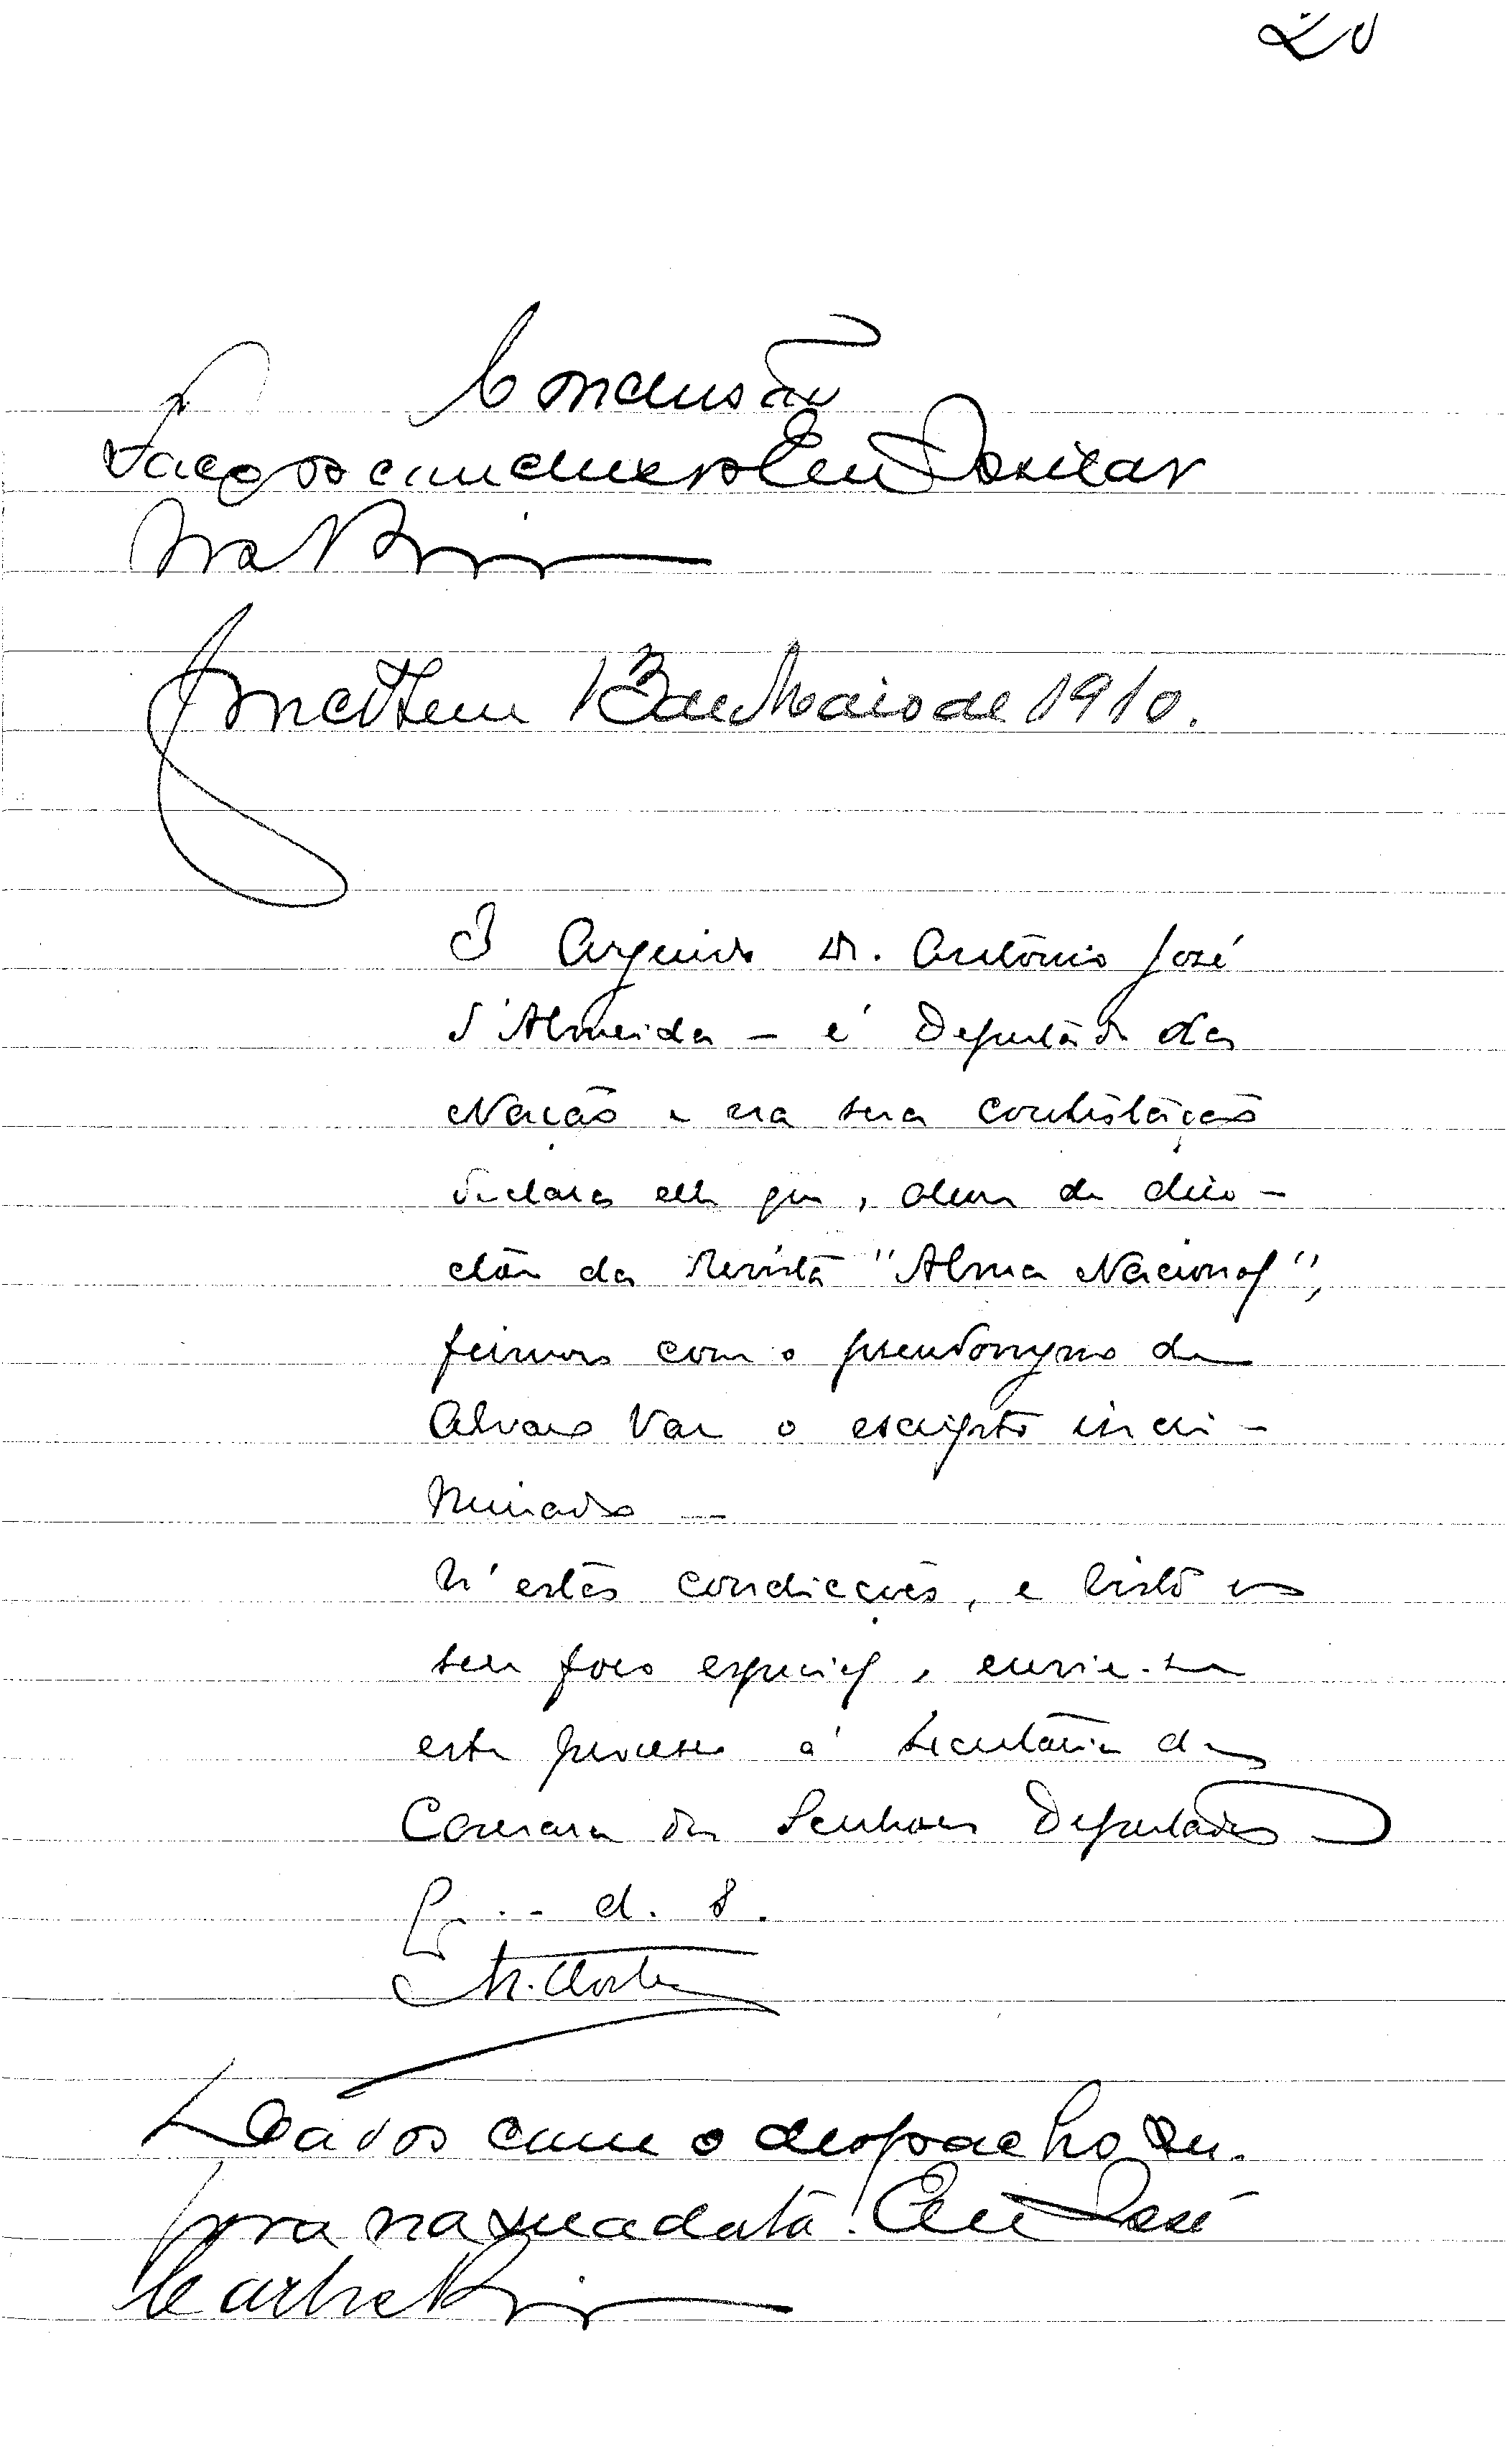 20
Conclusão
Faço os conclusos Eu José Car
Em 13 de Maio de 1910.
O Arguido Dr. António José
d'Almeida – é Deputado da
Nação e na sua contestação
declara elle que, alem de dire-
ctor da Revista "Alma Nacional",
firmou com o pseudonymo de
Alvaro Vaz o escripto incri-
minado –
N'estas condicções, e visto o
seu foro especial, envie-se
este processo á Secretaria da
Camara dos Senhores Deputados
d. s.
N. Costa
Dados com o despacho su-
pra na sua data. Eu José